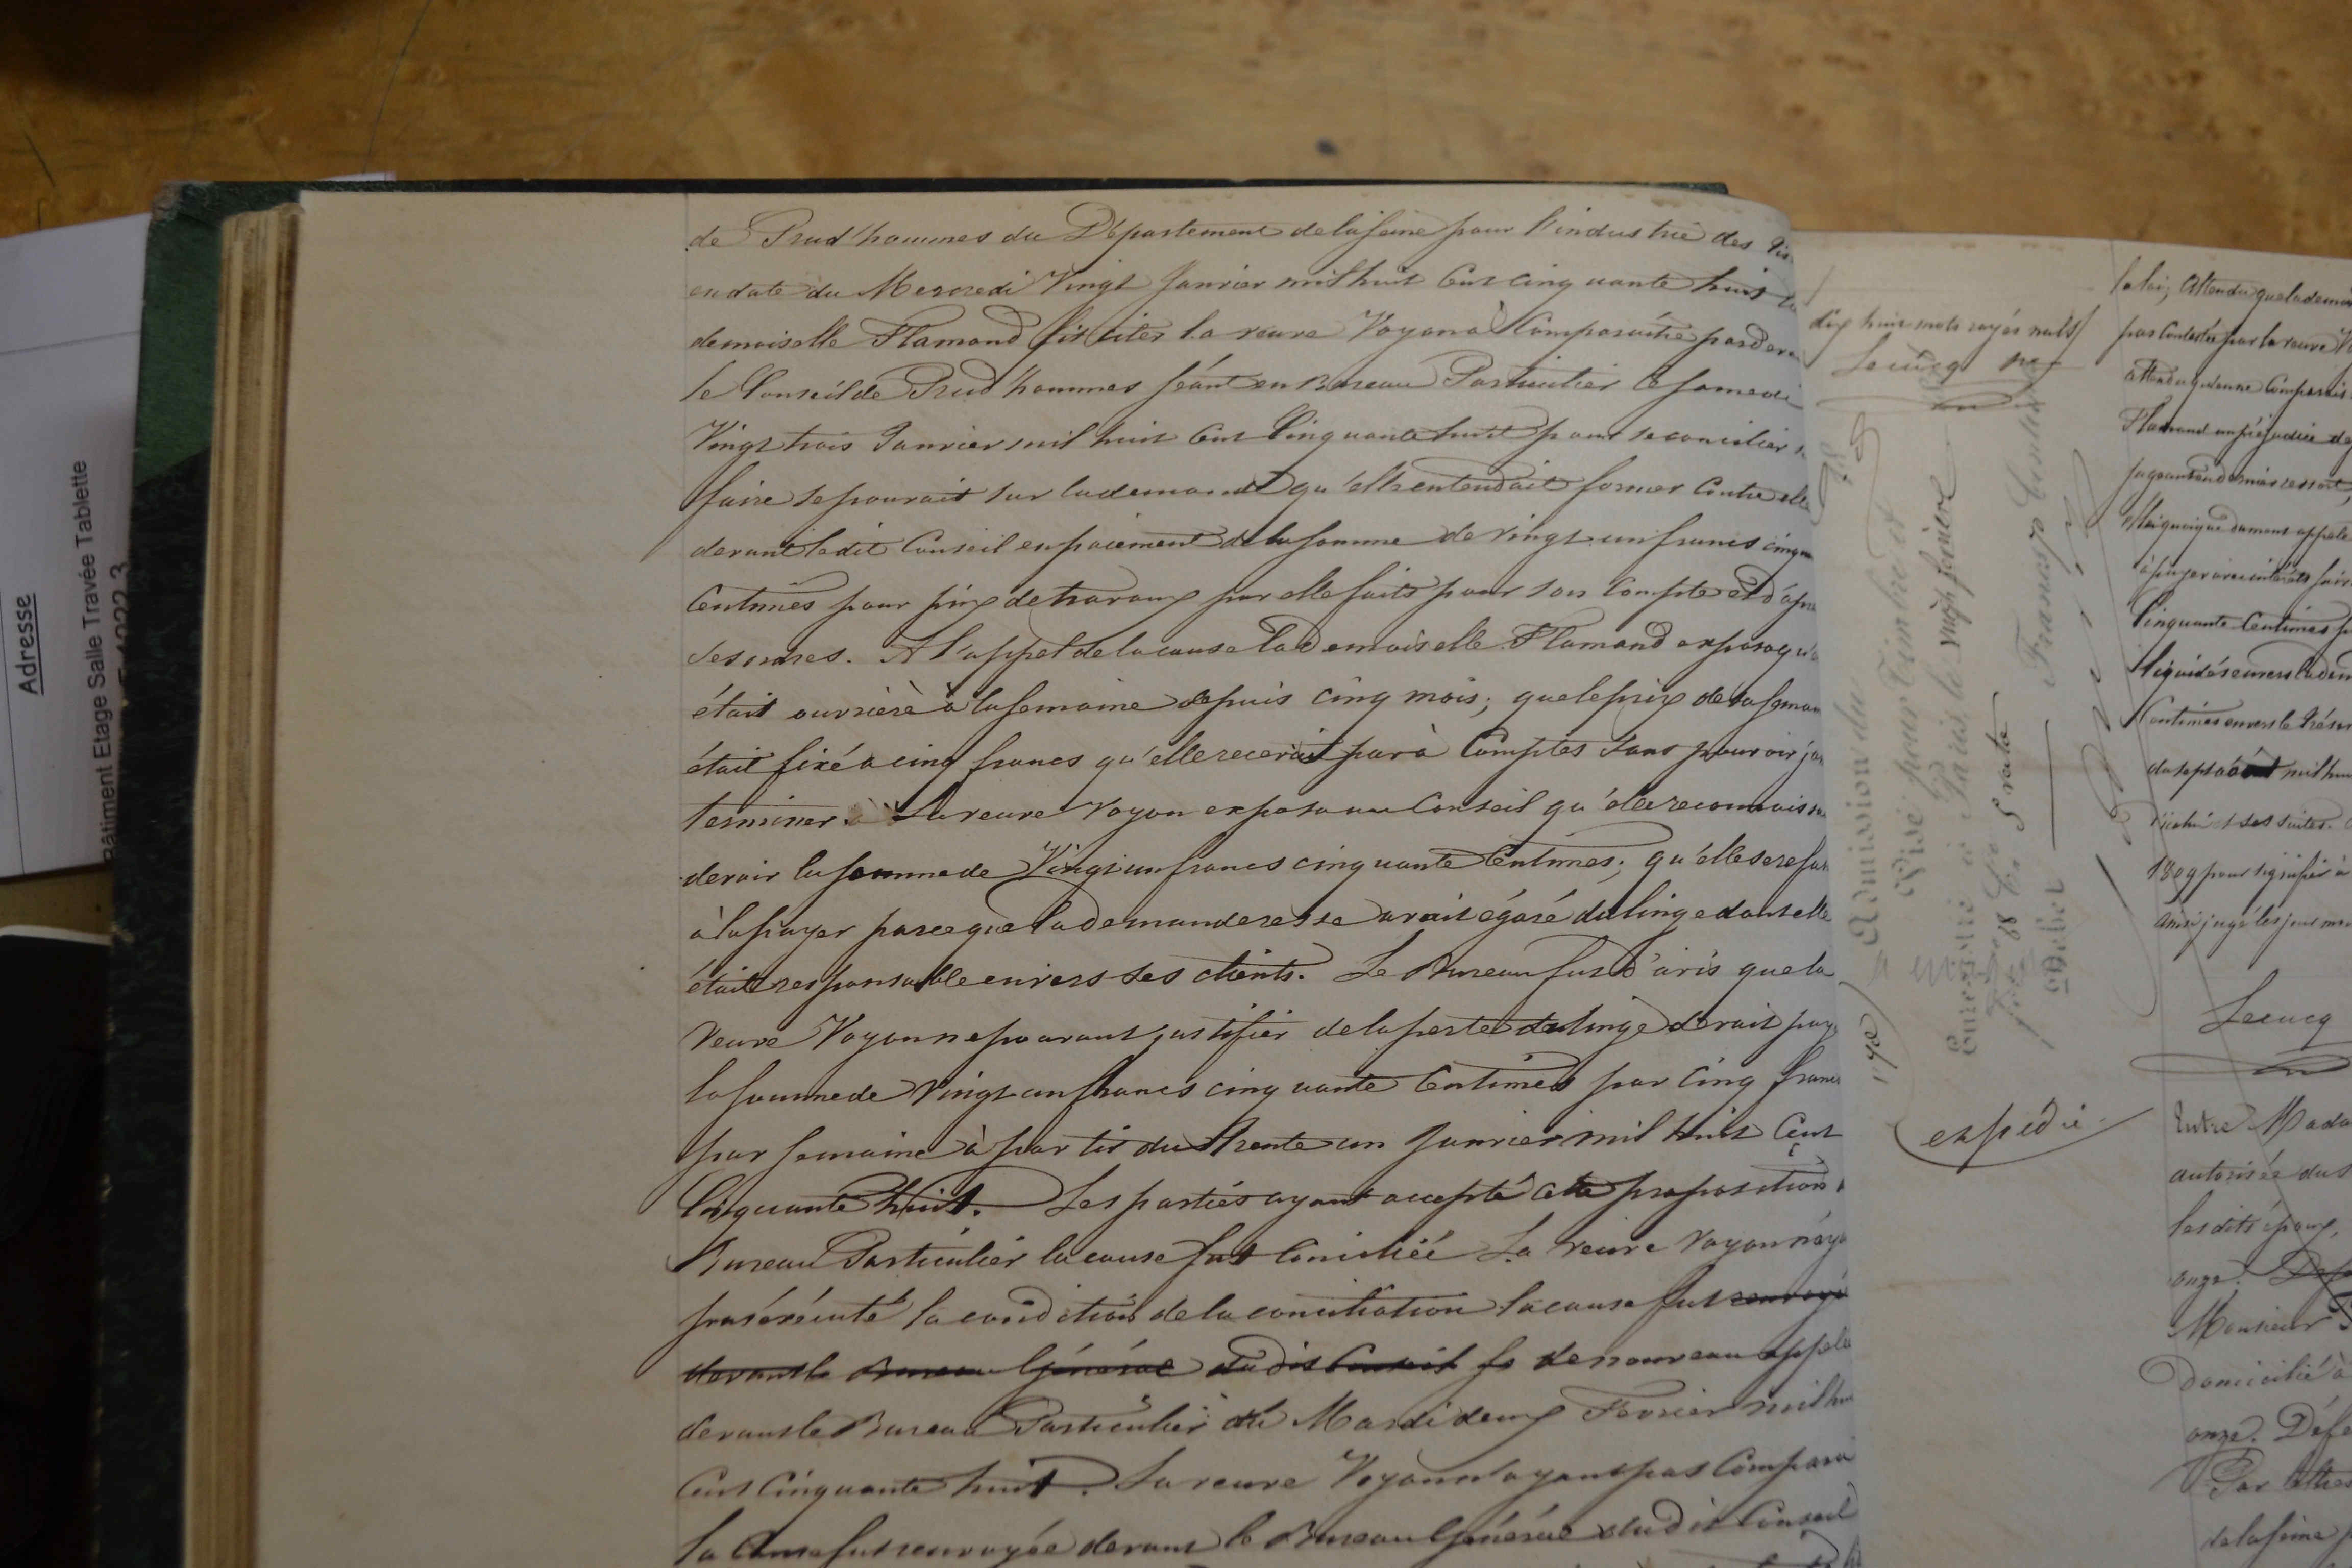 de Prud'hommes du Département de la seine pour l'industrie des
en date du Mercredi Vingt Janvier mil huit Cent cinquante huit
demoiselle Flamand fit citer la veuve Voyon à Comparaître pardevan
le Conseil de Prud'hommes séant en Bureau Particulier le samedi
Vingt trois Janvier mil huit Cent Cinquante huit pour se concilier si
faire se pouvait sur la demande qu'elle entendait former Contre elle
devant ledit Conseil en paiement de la somme de vingt un francs cinqua
Centimes pour prix de travaux par elle faits pour son Compte et d'après
ses ordres. A l'appel de la cause la Demoiselle Flamand exposa qu'
était ouvrière à la semaine depuis cinq mois; que le prix de sa semain
était fixé à cinq francs qu'elle recevait par à Comptes sans pouvoir jam
terminer. La veuve Voyon exposa au Conseil qu'elle reconnaissa
devoir la somme de Vingt un francs cinquante Centimes; qu'elle se refus
à la payer parceque la demanderesse avait égaré du linge dont elle
était responsable envers ses clients. Le Bureau fut d'avis que la
veuve Voyon ne pouvant justifier de la perte du linge devait paye
la somme de vingt un francs cinquante Centimes par cinq francs
par semaine à partir du trente un Janvier mil huit Cent
Cinquante huit. Les parties ayant accepté cette proposition
Bureau Particulier la cause fut Conciliée La veuve Voyon n'aya
pas exécuté la condition de la conciliation la cause fut renvoyé
devant le Bureau Général dudit Conseil fs de nouveau appelé
devant le Bureau Particulier du Mardi deux Février mil hui
Cent Cinquante huit. La veuve Voyon n'ayant pas Comparu
la Cause fut renvoyée devant le Bureau Général dudit Conseil
dix huit mots rayés nuls
Lecucq
expédié
la loi; Attendu que la deman
pas Contestée par la veuve V
Attendu
Flamand un préjudice de
jugeant en dernier ressort
quoique dument appelé
à payer avec intérêts suiv
Cinquante Centimes p
liquidés envers la dem
Centimes envers le trésor
du sept août mil hui
et ses suites.
1809 pour signifier à
Ainsi jugé les jour moi
Lecucq
Entre Mada
autorisée du s
les dits époux,
onze.
Monsieur
Domicilié à
onze. Défe
Par lettres
de la seine
Adresse
Bâtiment Etage Salle Travée Tablette